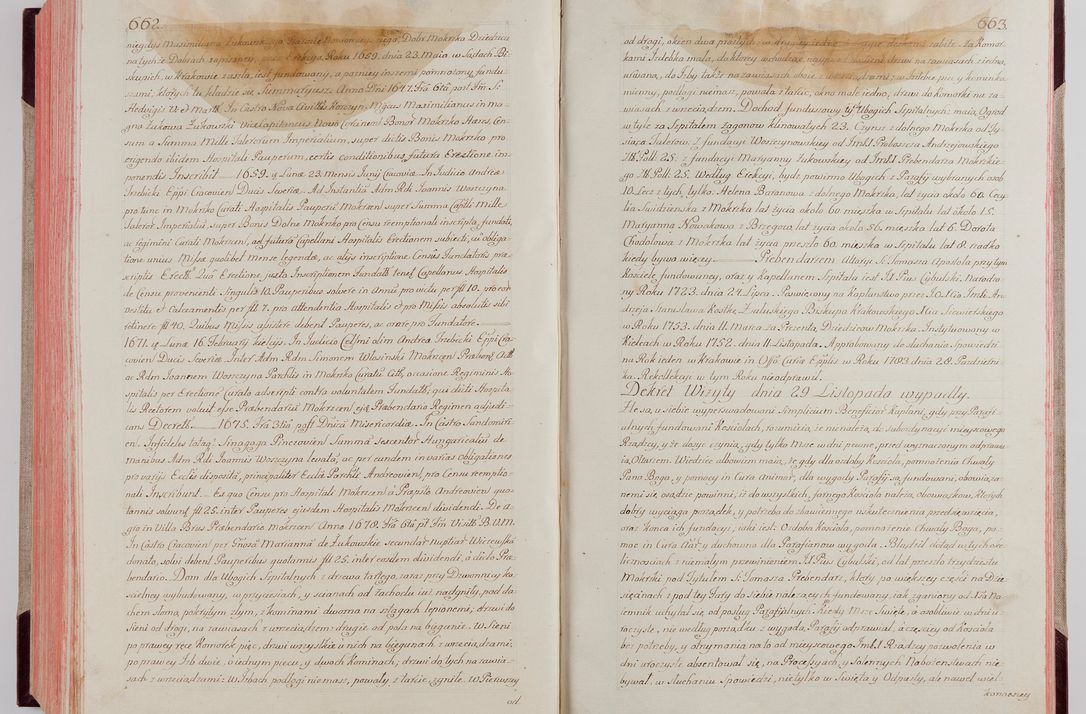 662.
niegdys Maximiliana Żukowskiego Dziedzica
na tychże Dobrach zapisanej, Erekcyą Roku 1659. dnia 23. Maia w Sądach Bi-
skupich, w Krakowie zaszłą, iest fundowany, a pozniey innemi pomnożony fundu-
szami, których tu kładzie się Summaryusz. Anno Dni 1647. Fria 6ta post Fm S.
Hedvigis V. et Marth. In Castro Nova Civitts Korczyn, Mgcus Maximilianus in ma-
gna Żukowa Żukowski ViceCapitaneus Novo Corcinen. Bonor. Mokrzko Hæres, Cen-
sum a Summa Mille Talerorum Imperialium, super dictis Bonis Mokrzko pro
erigendo ibidem Hospitali Pauperum, certis conditionibus futuræ Erectione im-
ponendis Inscribit. 1659. q Lunæ 23. Mensis Junij Cracoviæ In Judicio Andreæ
Trebicki Eppi Cracovien. Ducis Severiæ. Ad Instantiã Adm. Rdi Joannis Worszyna
pro tunc in Mokrzko Curati Hospitalis Pauperũ Mokrzcen. super Summa Capitli Mille
Taleror. Imperialiũ, super Bonis Dolne Mokrzko pro Censu reemptionali inscripta, fundati,
ac regimini Curati Mokrzcen., ad futurã Capellani Hospitalis Erectionem subiecti, ac obliga-
tione unius Missæ quolibet Mense legendæ, ac alijs inscriptione Census Fundatoris præ-
scriptis Erectit. Quã Erectione justa Inscriptionem Fundatti tenet Capellanus Hospitalis
de Censu provenienti. Singulis 10. Pauperibus solvere in Annũ pro victu per fll 10. pro con-
vestitu et Calceamentis per fll 7. pro attendentia Hospitalis et pro Missis absolutis sibi
retinere fll 40. Quibus Missis assistere debent Pauperes, ac orare pro Fundatore.
1671. q Lunæ 16. February Kielcijs. In Judicio Celsmi olim Andreæ Trebicki Eppi Cra-
covien. Ducis Severiæ Inter Adm. Rdm Simonem Wlosinski Mokrzcen. Præbend. Actt.
ac Rdm Joannem Worszyna Parchlis in Mokrzko Curatũ Citt., occasione Regiminis Ho-
spitalis per Erectione Curato adscripti contra voluntatem Fundatti, qui dicti Hospita-
lis Rectorem voluit esse Præbendariũ Mokrzcen. ejq Præbendario Regimen adjudi-
cans Decrett. 1675. Fria 3tia post Dnicã Misericordia. In Castro Sandomiri-
en. Infideles totaq. Sinagoga Pinczovien. Summã Sexcentor. Hungaricaliũ de
manibus Adm. Rdi Joannis Worszyna levatã, ac per eundem in varias obligationes
pro varijs Ecclis disposita, principaliter Ecclæ Parchli Andreovien., pro Censu reemptio-
nali Inscribunt. Ex quo Censu pro Hospitali Mokrzcen. à Præpsto Andreovien. quo-
tannis solvunt. fll 25. inter Pauperes ejusdem Hospitalis Mokrzcen. dividendi. De a-
gro in Villa Brus Præbendario Mokrzcen. Anno 1678. Fria 6ta pst. Fm Visittis B.V.M.
In Castro Cracovien. per Gnosã Mariannã de Żukowskie secundar. nuptiar. Wiereyska
donato, solvi debent Pauperibus quotannis fll 25. inter eosdem dividendi, à dicto Præ-
bendario. Dom dla Ubogich Szpitalnych z drzewa tartego, zaraz przy Dzwonnicy Ko-
scielney wybudowany, w przyciesiach, y scianach od Zachodu iuż nadgniły, pod da-
chem słomą pokrytym złym, z kominami dwoma na sztągach lepionemi; drzwi do
Sieni od drogi, na zawiasach z wrzeciądzem: drugie od pola na biegunie. W Sieni
po prawey ręce Komorek pięc, drzwi wszystkie u nich na biegunach z wrzeciądzami:
po prawey Izb dwie, o iednym piecu, y dwoch Kominach; drzwi do tych na zawia-
sach z wrzeciądzami: w Izbach podłogi niemasz, powały, z tarcic, zgniłe. w Pierwszy
od
663.
od drogi, okien dwa prostych, w drugiey iedno deskami zabite. Za Komor-
kami Izdebka mała, do ktorey wchodząc naypierwey w sieni drzwi na zawiasach z iedną,
ufasana, do Izby także na zawiasach oboie z wrzeciądzami: w Izdebce piec y kominka
murowany, podłogi nieinasz, powała z tarcic, okno małe iedno, drzwi do komorki na za-
wiasach z wrzeciądzem. Dochod funduszowy tych Ubogich Szpitalnych: maią, Ogrod
w tyle za Szpitalem zagonow klinowatych 23. Czynsz z dolnego Mokrzka od Ty-
siąca Talerow: z funduszu Worszynowskiey od ImX. Proboszcza Andrzejowskiego
Zlt. Poll. 25: z fundacyi Maryanny Żukowskiey od ImX. Prebendarza Mokrzckie-
go Zlt. Poll. 25. Według Erekcyi, bydź powinno Ubogich z Parafij wybranych osob
10. Lecz z tych, tylko Helena Baranowa z dolnego Mokrzka, lat życia około 60. Cecy-
lia Swidzinska z Mokrzka lat życia około 60. mieszka w Szpitalu lat około 15.
Maryanna Nowakowa z Brzegow, lat życia około 56. mieszka lat 6. Dorota
Chodolowa z Mokrzka lat życia przeszło 60. mieszka w Szpitalu lat 8. rzadko
kiedy bywa więcey. Prebendarzem Altarzu S. Tomasza Apostoła przy tym
Kosciele fundowaney, oraz y kapellanem Szpitalu iest X. Pius Cybulski. Narodzo-
ny Roku 1723. dnia 24. Lipca. Poswięcony na Kapłaństwo przez J.O. Xcia Imci An-
drzeja Stanisława Kostkę Załuskiego Biskupa Krakowskiego Xcia Siewierskiego
w Roku 1753. dnia 11. Marca za Prezentą Dziedziców Mokrzka. Instytuowany w
Kielcach w Roku 1752. dnia 11. Listopada. Approbowany do słuchania Spowiedzi
na Rok ieden w Krakowie in Offo Curiæ Epplis w Roku 1783. dnia 28. Pazdzierni-
ka. Rekollekcyi w tym Roku nieodprawił.
Dekret Wizyty dnia 29 Listopada wypadły.
Zle są, u siebie wyperswadowani Simplicium Beneficior. Kapłani, gdy przy Parafi-
alnych fundowani Kosciołach, rozumieią, że nienależą, do subordynacyi mieyscowego
Rządzcy, y że dosyc czynią, gdy tylko Msze w dni pewne, przed wyznaczonym odprawu-
ią Oltarzem. Wiedziec albowiem maią, że gdy dla ozdoby Koscioła, pomnożenia Chwały
Pana Boga, y pomocy in Cura Animar., dla wygody Parafij są, fundowani, obowiąza-
nemi się, osądzic powinni, i że do wszystkich, farnego Koscioła należą, obowiązkow, ktorych
dobry wyciąga porządek, y potrzeba do zbawiennego uskutecznienia przedsięwzięcia,
oraz końca ich fundacyi, iaki iest: Ozdoba Koscioła, pomnożenie Chwały Boga, po-
moc in Cura Aiar. y duchowna dla Parafianow wygoda. Błądził dotąd w tych oko-
licznosciach z niemałym przewinieniem X. Pius Cybulski, od lat przeszło trzydziestu
Mokrzki pod Tytułem S. Tomasza Prebendarz, ktory, po większey części na Dzie-
sięcinach z pod tey Fary do siebie należących fundowany, iak zganiony od Xa Ple-
ban, uchylał się od posług Parafialnych. Kiedy Msze Swięte, a osobliwie w dni u-
roczyste, nie według porządku z wygodą, Parafij odprawiał, a częściey od Koscioła
bez potrzeby, y otrzymania na to od mieyscowego ImX. Rządzcy pozwolenia w
dni uroczyste absentował się, na Processyach y solennych Nabożenstwach nie
bywał, w słuchaniu Spowiedzi, nietylko w Swięta y Odpusty, ale nawet wiel-
kanocney